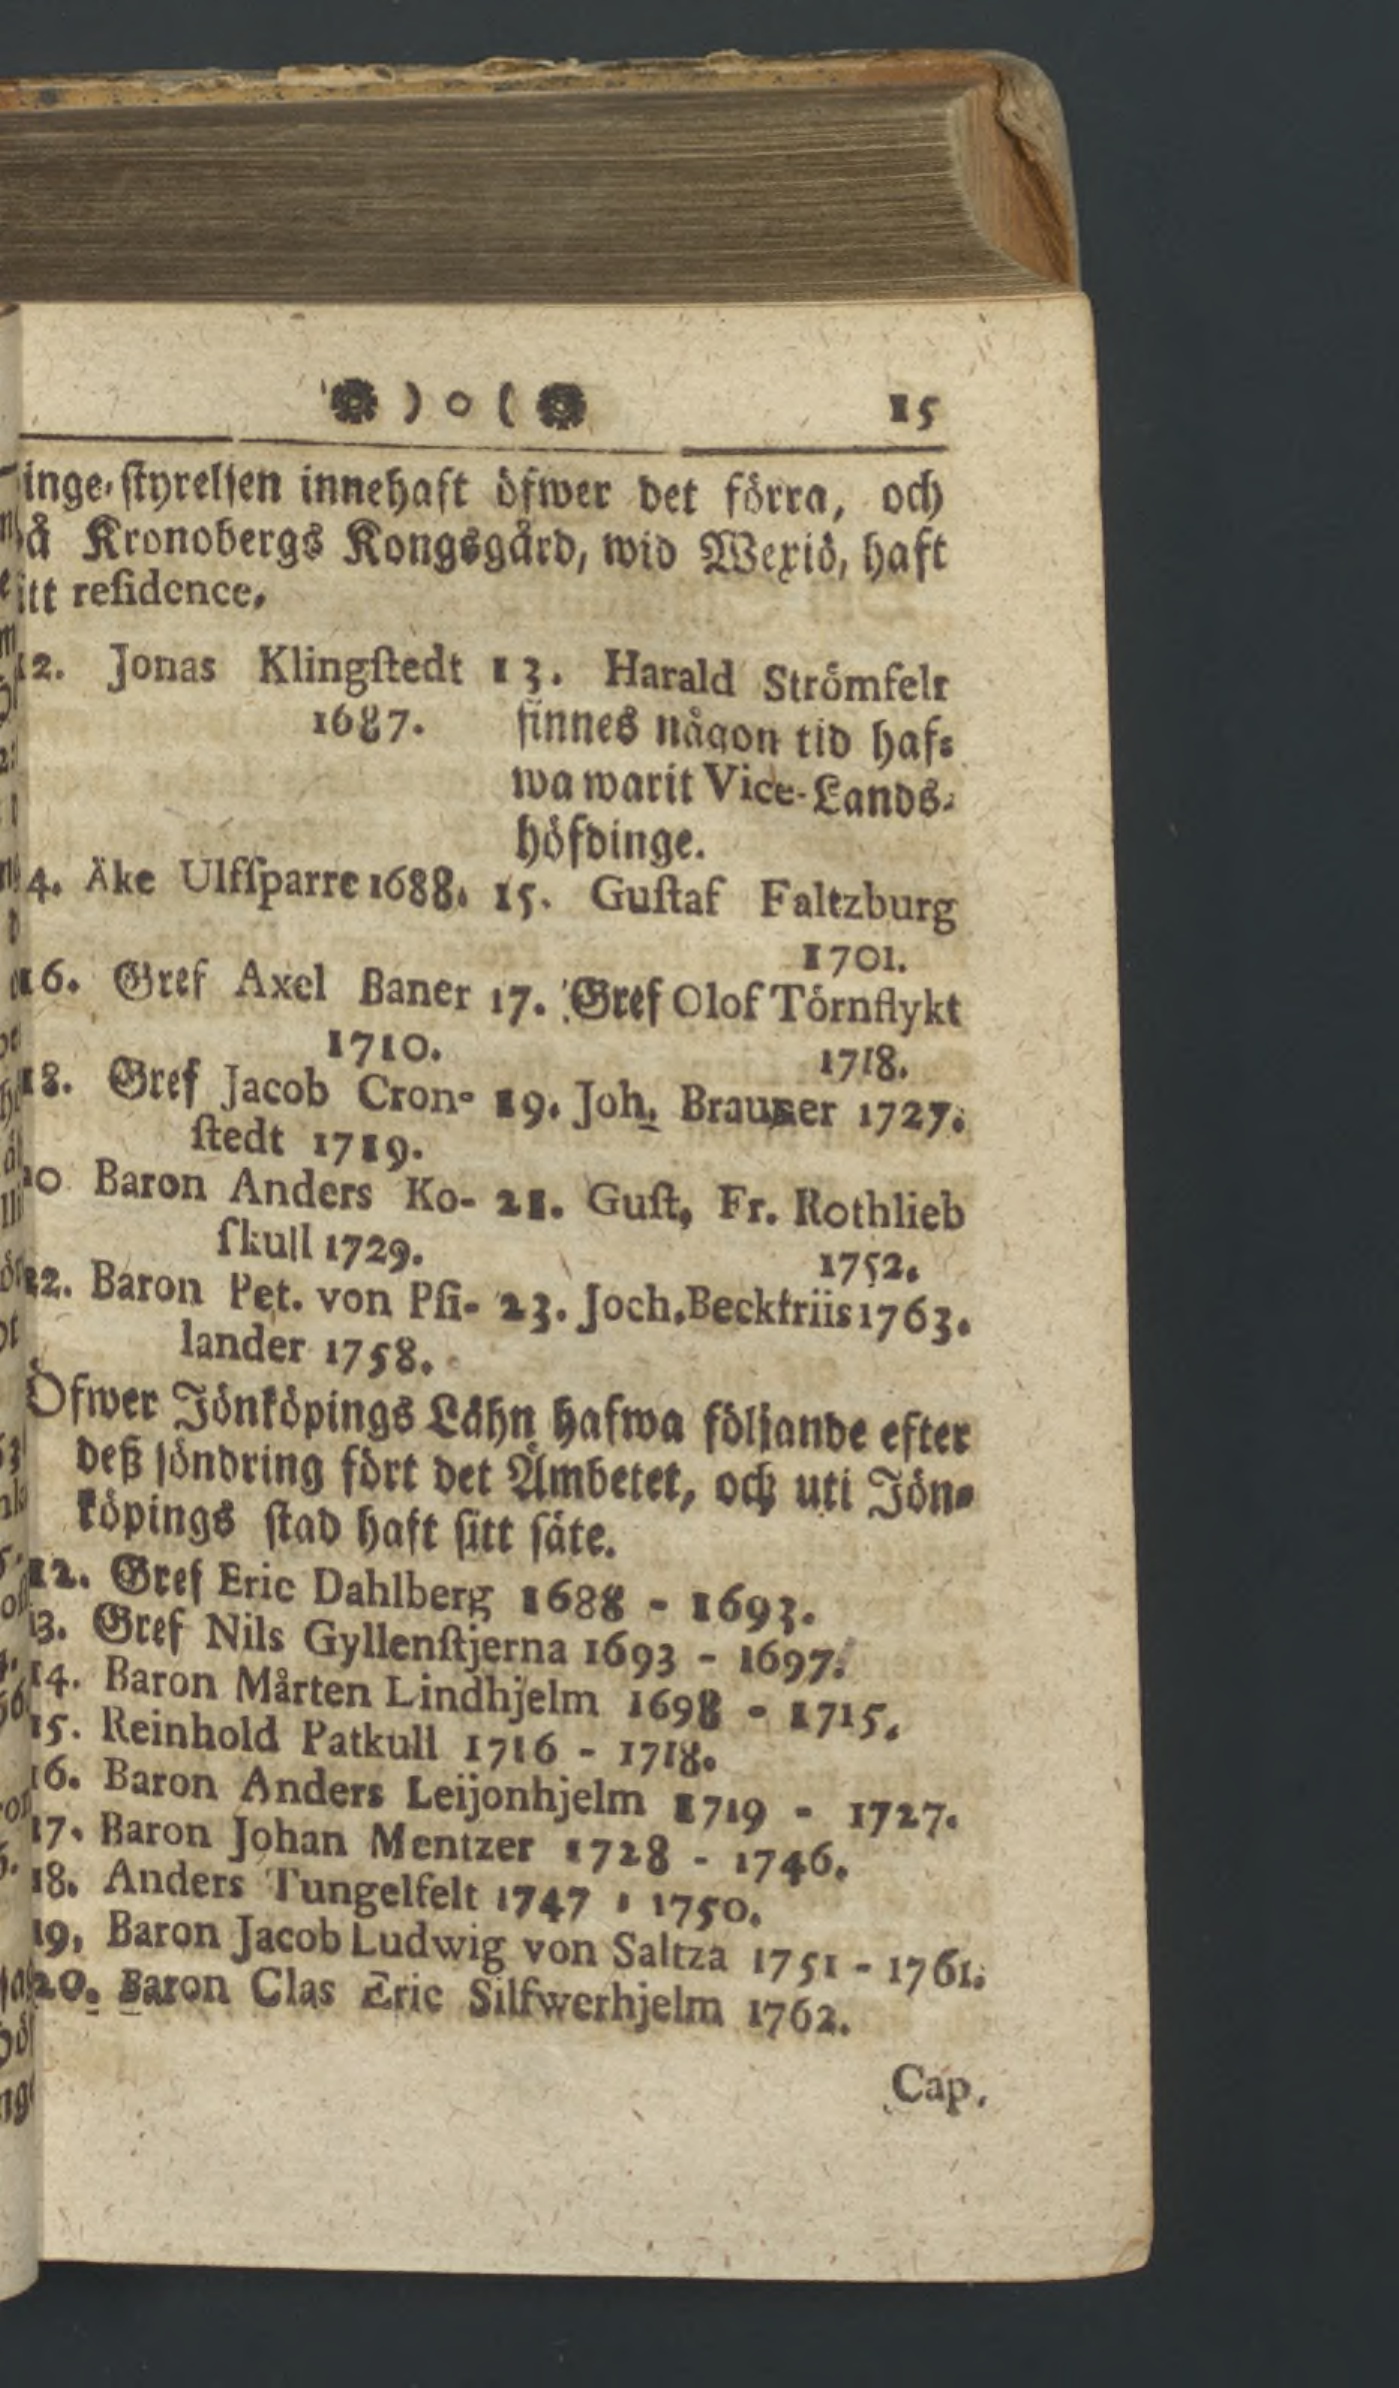 ) o ( 15
inge-styrelsen innehaft öfwer det förra, och
å Kronobergs Kongsgård, wid Wexiö, haft
itt residence.
12. Jonas Klingstedt
1687.
13. Harald Strömfelt
finnes någon tid haf-
wa warit Vice-Lands-
höfdinge.
4. Åke Ulfsparre 1688.
15. Gustaf Faltzburg
1701.
16. Gref Axel Baner
1710.
17. Gref Olof Törnflykt
1718.
18. Gref Jacob Cron-
stedt 1719.
19. Joh. Brauner 1727.
20 Baron Anders Ko-
skull 1729.
21. Gust, Fr. Rothlieb
1752.
22. Baron Pet. von Psi-
lander 1758.
23. Joch. Beckfriis 1763.
Öfwer Jönköpings Lähn hafwa följande efter
deß söndring fört det Ämbetet, och uti Jön-
köpings stad haft sitt säte.
12. Gref Eric Dahlberg 1688 - 1693.
13. Gref Nils Gyllenstjerna 1693 - 1697.
14. Baron Mårten Lindhjelm 1698 - 1715.
15. Reinhold Patkull 1716 - 1718.
16. Baron Anders Leijonhjelm 1719 - 1727.
17. Baron Johan Mentzer 1728 - 1746.
18. Anders Tungelfelt 1747 - 1750.
19, Baron Jacob Ludwig von Saltza 1751 - 1761.
20. Baron Clas Eric Silfwerhjelm 1762.
Cap.